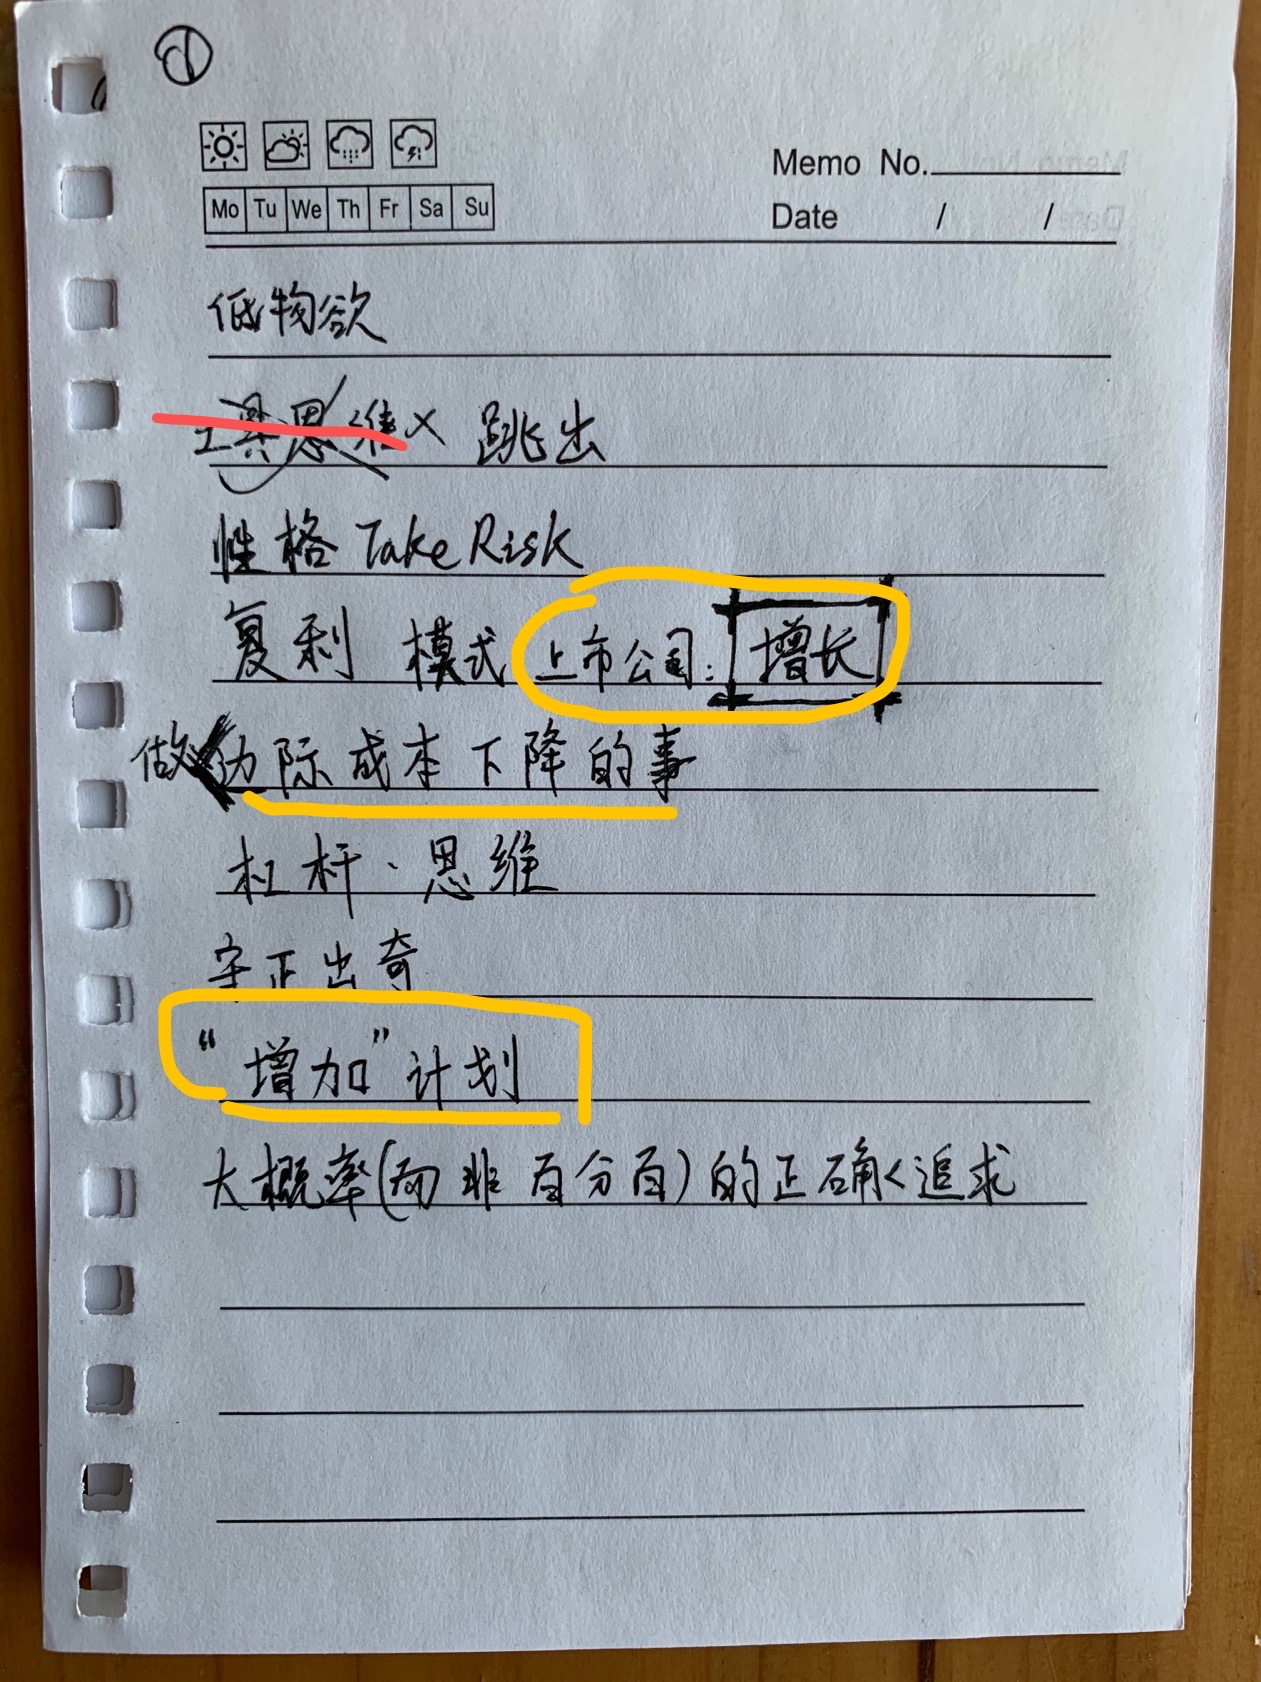 ①
Memo No.
Mo Tu We Th Fr Sa Su
Date / /
低物欲
工具思维× 跳出
性格 Take Risk
复利 模式 上市公司: 增长
做边际成本下降的事
杠杆、思维
守正出奇
“增加”计划
大概率(而非百分百)的正确<追求